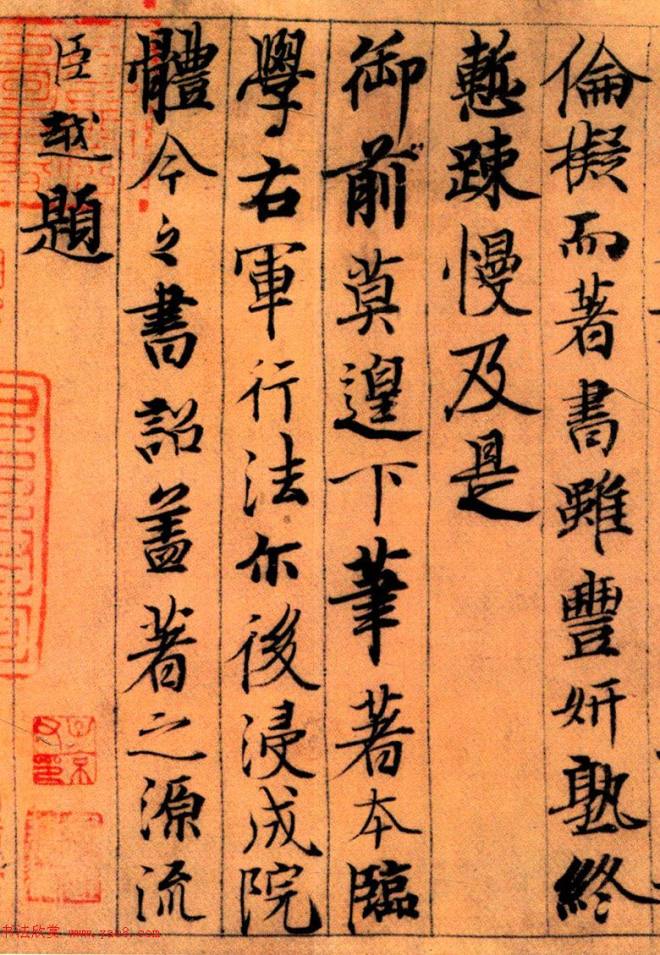 倫擬而著書雖豐妍熟終
慙疎慢及是
御前莫遑下筆著本臨
學右軍行法尒後浸成院
體今之書詔葢著之源流
臣越題
书法欣赏 www.yac8.com